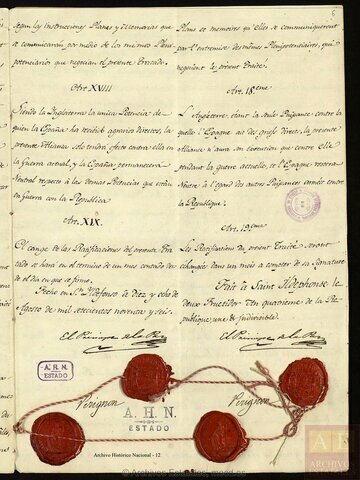 segun las instrucciones Planes y Memorias que
se comunicarán por medio de los mismos Pleni
potenciarios que negocian el presente Tratado.
Art. XVIII
Siendo la Inglaterra la unica Potencia de
quien la España ha recibido agravios directos, la
presente Alianza solo tendrá efecto contra ella en
la Guerra actual, y la España permanecerá
Neutral respecto á las demas Potencias que están
en Guerra con la Republica
Art. XIX.
El cange de las Ratificaciones del presente Tra
tado se hará en el termino de un mes contado des
de el dia en que se firme.
Fecho en Sn. Ildefonso de Diez y ocho de
Agosto de mil setecientos noventa y seis.
El Principe de la Paz
A.H.N.
ESTADO
Perignon
Plans et memoires qu'elles se communiqueront
par l'entremise des mêmes Plenipotentiaires, qui
negocient le présent Traité.
Art. 18eme
L'Angleterre, étant la seule Puissance contre la
quelle l'Espagne ait des griefs directs, la presente
Alliance n'aura son execution que contre Elle
pendant la guerre actuelle, et l'Espagne restera
Neutre à l'égard des autres Puissances armées contre
la Republique.
Art. 19eme
Les Ratifications du present Traité seront
échangées dans un mois à compter de sa Signature
Fait à Saint Ildephonse le
deux Fructidor l'an quatrieme de la Ré
publique, une & indivisible.
El Principe de la Paz
Perignon
A.H.N.
ESTADO
Archivo Histórico Nacional - 12
ARCHIVO